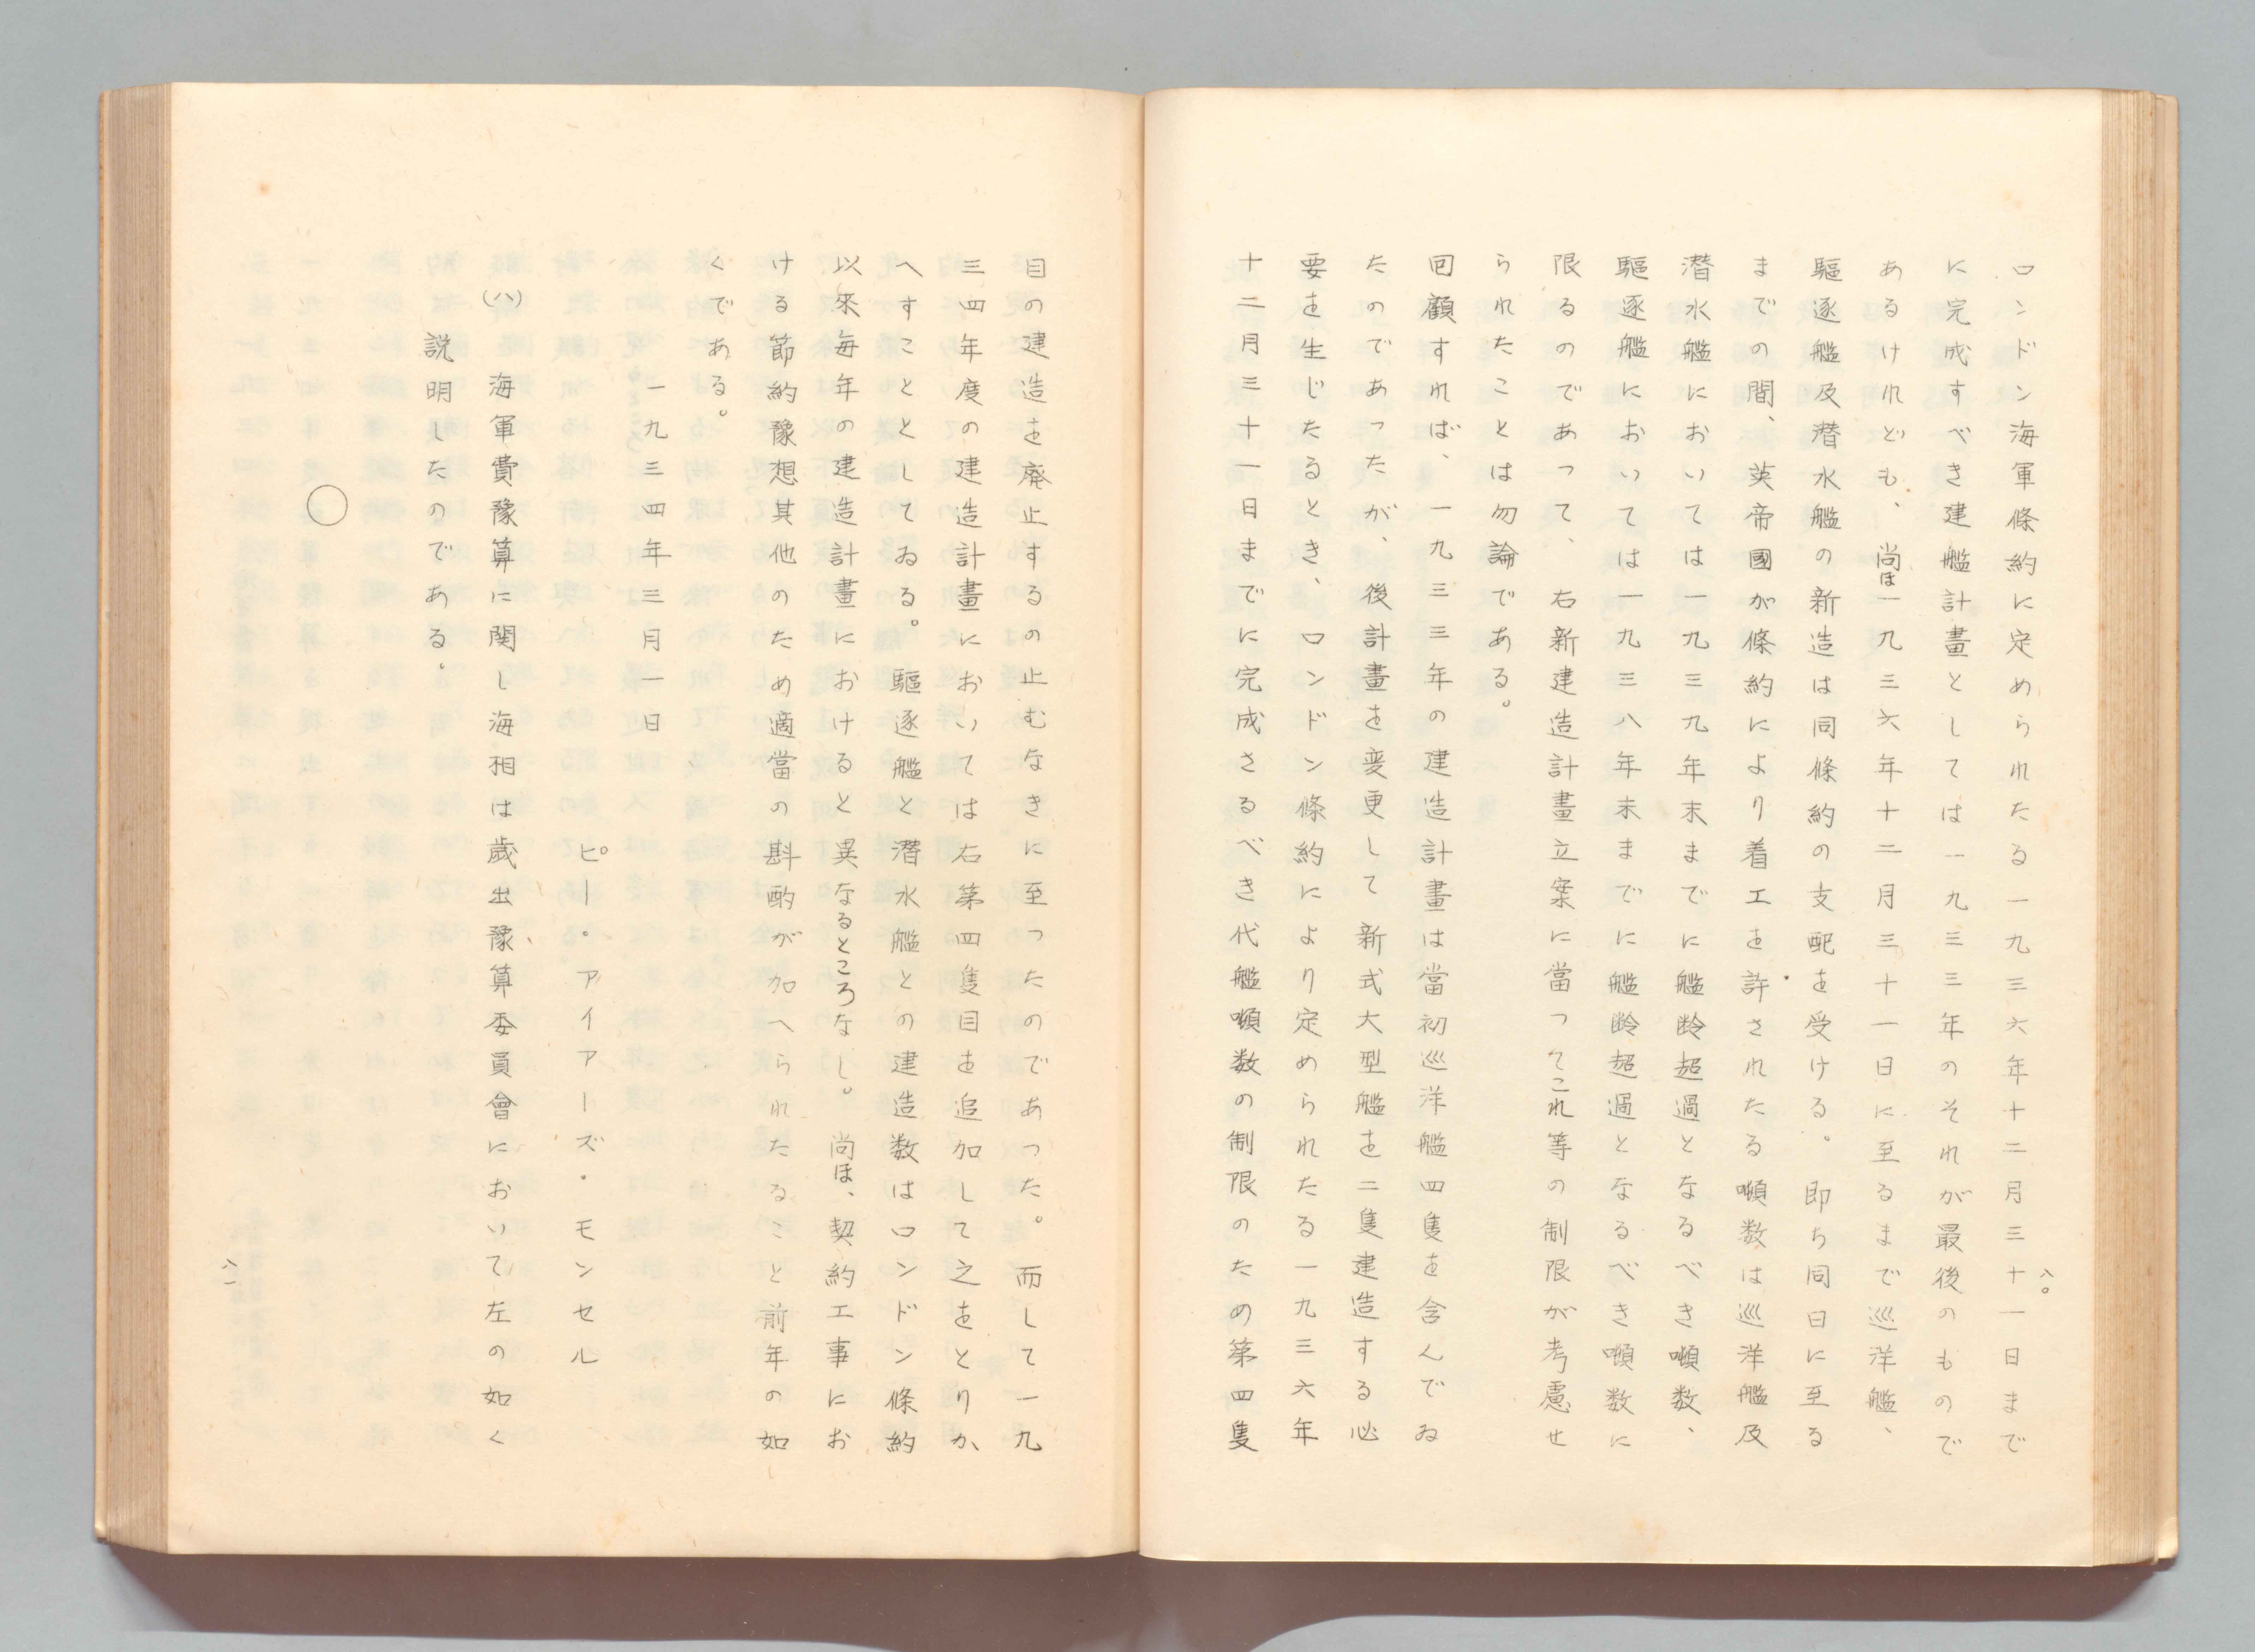 八〇
ロンドン海軍條約に定められたる一九三六年十二月三十一日まで
に完成すべき建艦計畫としては一九三三年のそれが最後のもので
あるけれども、尚ほ一九三六年十二月三十一日に至るまで巡洋艦、
驅逐艦及潜水艦の新造は同條約の支配を受ける。即ち同日に至る
までの間、英帝國が條約により着工を許されたる噸数は巡洋艦及
潜水艦においては一九三九年末までに艦齢超過となるべき噸数、
驅逐艦においては一九三八年末までに艦齢超過となるべき噸数に
限るのであって、右新建造計畫立案に當ってこれ等の制限が考慮せ
られたことは勿論である。
回顧すれば、一九三三年の建造計畫は當初巡洋艦四隻を含んでゐ
たのであったが、後計畫を変更して新式大型艦を二隻建造する必
要を生じたるとき、ロンドン條約により定められたる一九三六年
十二月三十一日までに完成さるべき代艦噸数の制限のため第四隻
目の建造を廃止するの止むなきに至ったのであった。而して一九
三四年度の建造計畫においては右第四隻目を追加して之をとりか
へすこととしてゐる。驅逐艦と潜水艦との建造数はロンドン條約
以來毎年の建造計畫におけると異なるところなし。尚ほ、契約工事にお
ける節約豫想其他のため適當の斟酌が加へられたること前年の如
くである。
一九三四年三月一日
ピー・アイアーズ・モンセル
(ハ) 海軍費豫算に関し海相は歳出豫算委員會において左の如く
説明したのである。
○
八一